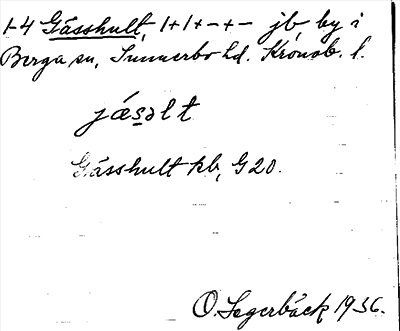 1-4 Gässhult, 1+1+-+- jb, by i
Berga sn, Sunnerbo hd. Kronob. l.
jásəlt
Gässhult kb, G20.
O. Segerbäck 1936.